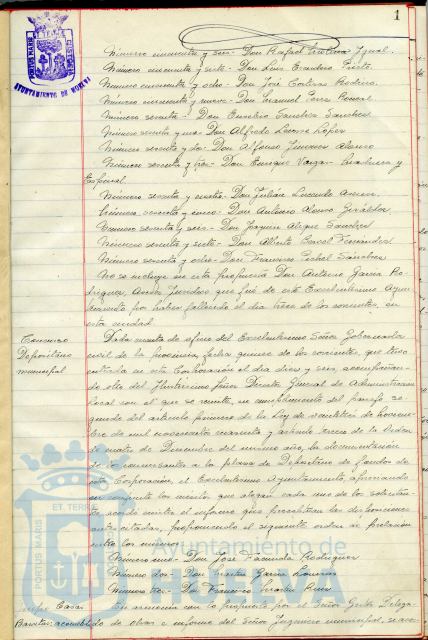 1
AYUNTAMIENTO DE HUELVA
Número cincuenta y seis - Don Rafael Igual.
Número cincuenta y siete - Don Luis Escudero Prieto.
Número cincuenta y ocho - Don José Contreras
Número cincuenta y nueve - Don Manuel Ponce
Número sesenta - Don Eusebio Sánchez Sánchez
Número sesenta y uno - Don Alfredo López
Número sesenta y dos - Don Alfonso Jimenez Alonso
Número sesenta y tres - Don Enrique Vargas y
Número sesenta y cuatro - Don Julián
Número sesenta y cinco - Don Antonio Alonso Giráldez
Número sesenta y seis - Don Joaquin Sánchez
Número sesenta y siete - Don Alberto Fernandez
Número sesenta y ocho - Don Francisco Sánchez
No se incluye en esta propuesta Don Antonio Garcia Ro-
driguez, que fué de este Excelentísimo Ayun-
tamiento por haber fallecido el día trece de los corrientes, en
esta ciudad
Concurso
Depositario
municipal
Dada cuenta de oficio del Excelentísimo Señor Gobernador
civil de la provincia, fecha quince de los corrientes, que tuvo
entrada en esta Corporación el día diez y seis, acompañan-
do otro del Ilustrísimo Señor Director General de Administración
Local con el que se remite, en cumplimiento del párrafo se-
gundo del artículo primero de la Ley de veintitrés de Noviem-
bre de mil novecientos cuarenta y de la Orden
de cuatro de Diciembre del mismo año, la documentación
de los concursantes a la plaza de Depositario de fondos de
esta Corporación, el Excelentísimo Ayuntamiento, apreciando
en conjunto los méritos que alegan cada uno de los solicitan-
tes, acordó emitir el informe que preceptúan las disposiciones
antes citadas, proponiendo el siguiente orden de prelación
entre los mismos:
Número uno - Don José Rodriguez
Número dos - Don Garcia
Número tres - Don Francisco Martin
Casas
Baratas:
En armonía con lo propuesto por el Señor Gestor Delega-
do de obras e informe del Señor Ingeniero municipal, se acor-
PORTUS MARIS ET TERRAE CUSTODIA
Ayuntamiento de
HUELVA